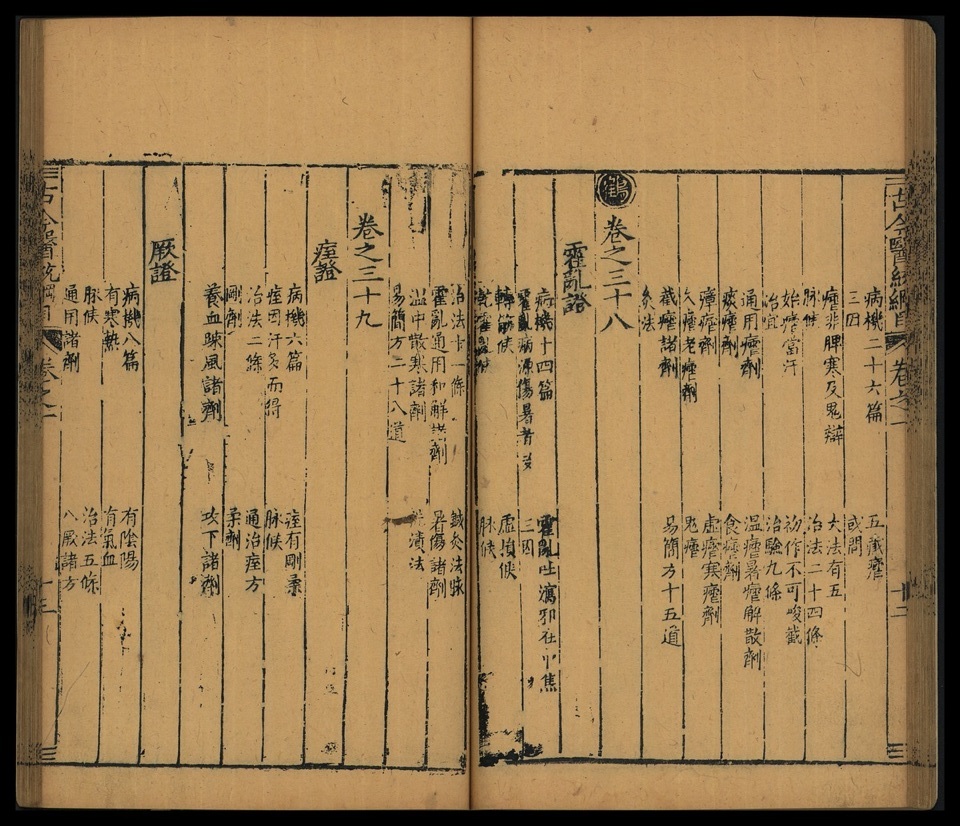 古今醫統綱目 卷之一 十二
病機二十六篇 五臟瘧
三因 或問
瘧非脾寒及鬼辯 大法有五
脉候 治法二十四條
始瘧當汗 初作不可峻截
治宜 治驗九條
通用瘧劑 溫瘧暑瘧解散劑
痰瘧劑 食瘧劑
瘴瘧劑 虛瘧寒瘧劑
久瘧老瘧劑 鬼瘧
截瘧諸劑 易簡方十五道
灸法
卷之三十八
霍亂證
病機十四篇 霍亂吐瀉邪在中焦
霍亂病源傷暑者多 三因
轉筋候 虛損候
脉候
治法十一條 鍼灸法
霍亂通用和解諸劑 暑傷諸劑
溫中散寒諸劑 漬法
易簡方二十八道
卷之三十九
痓證
病機六篇 痓有剛柔
痓因汗多而得 脉候
治法二條 通治痓方
剛劑 柔劑
養血疎風諸劑 攻下諸劑
厥證
病機八篇 有陰陽
有寒熱 有氣血
脉候 治法五條
通用諸劑 八厥諸方
古今醫統綱目 卷之一 十三